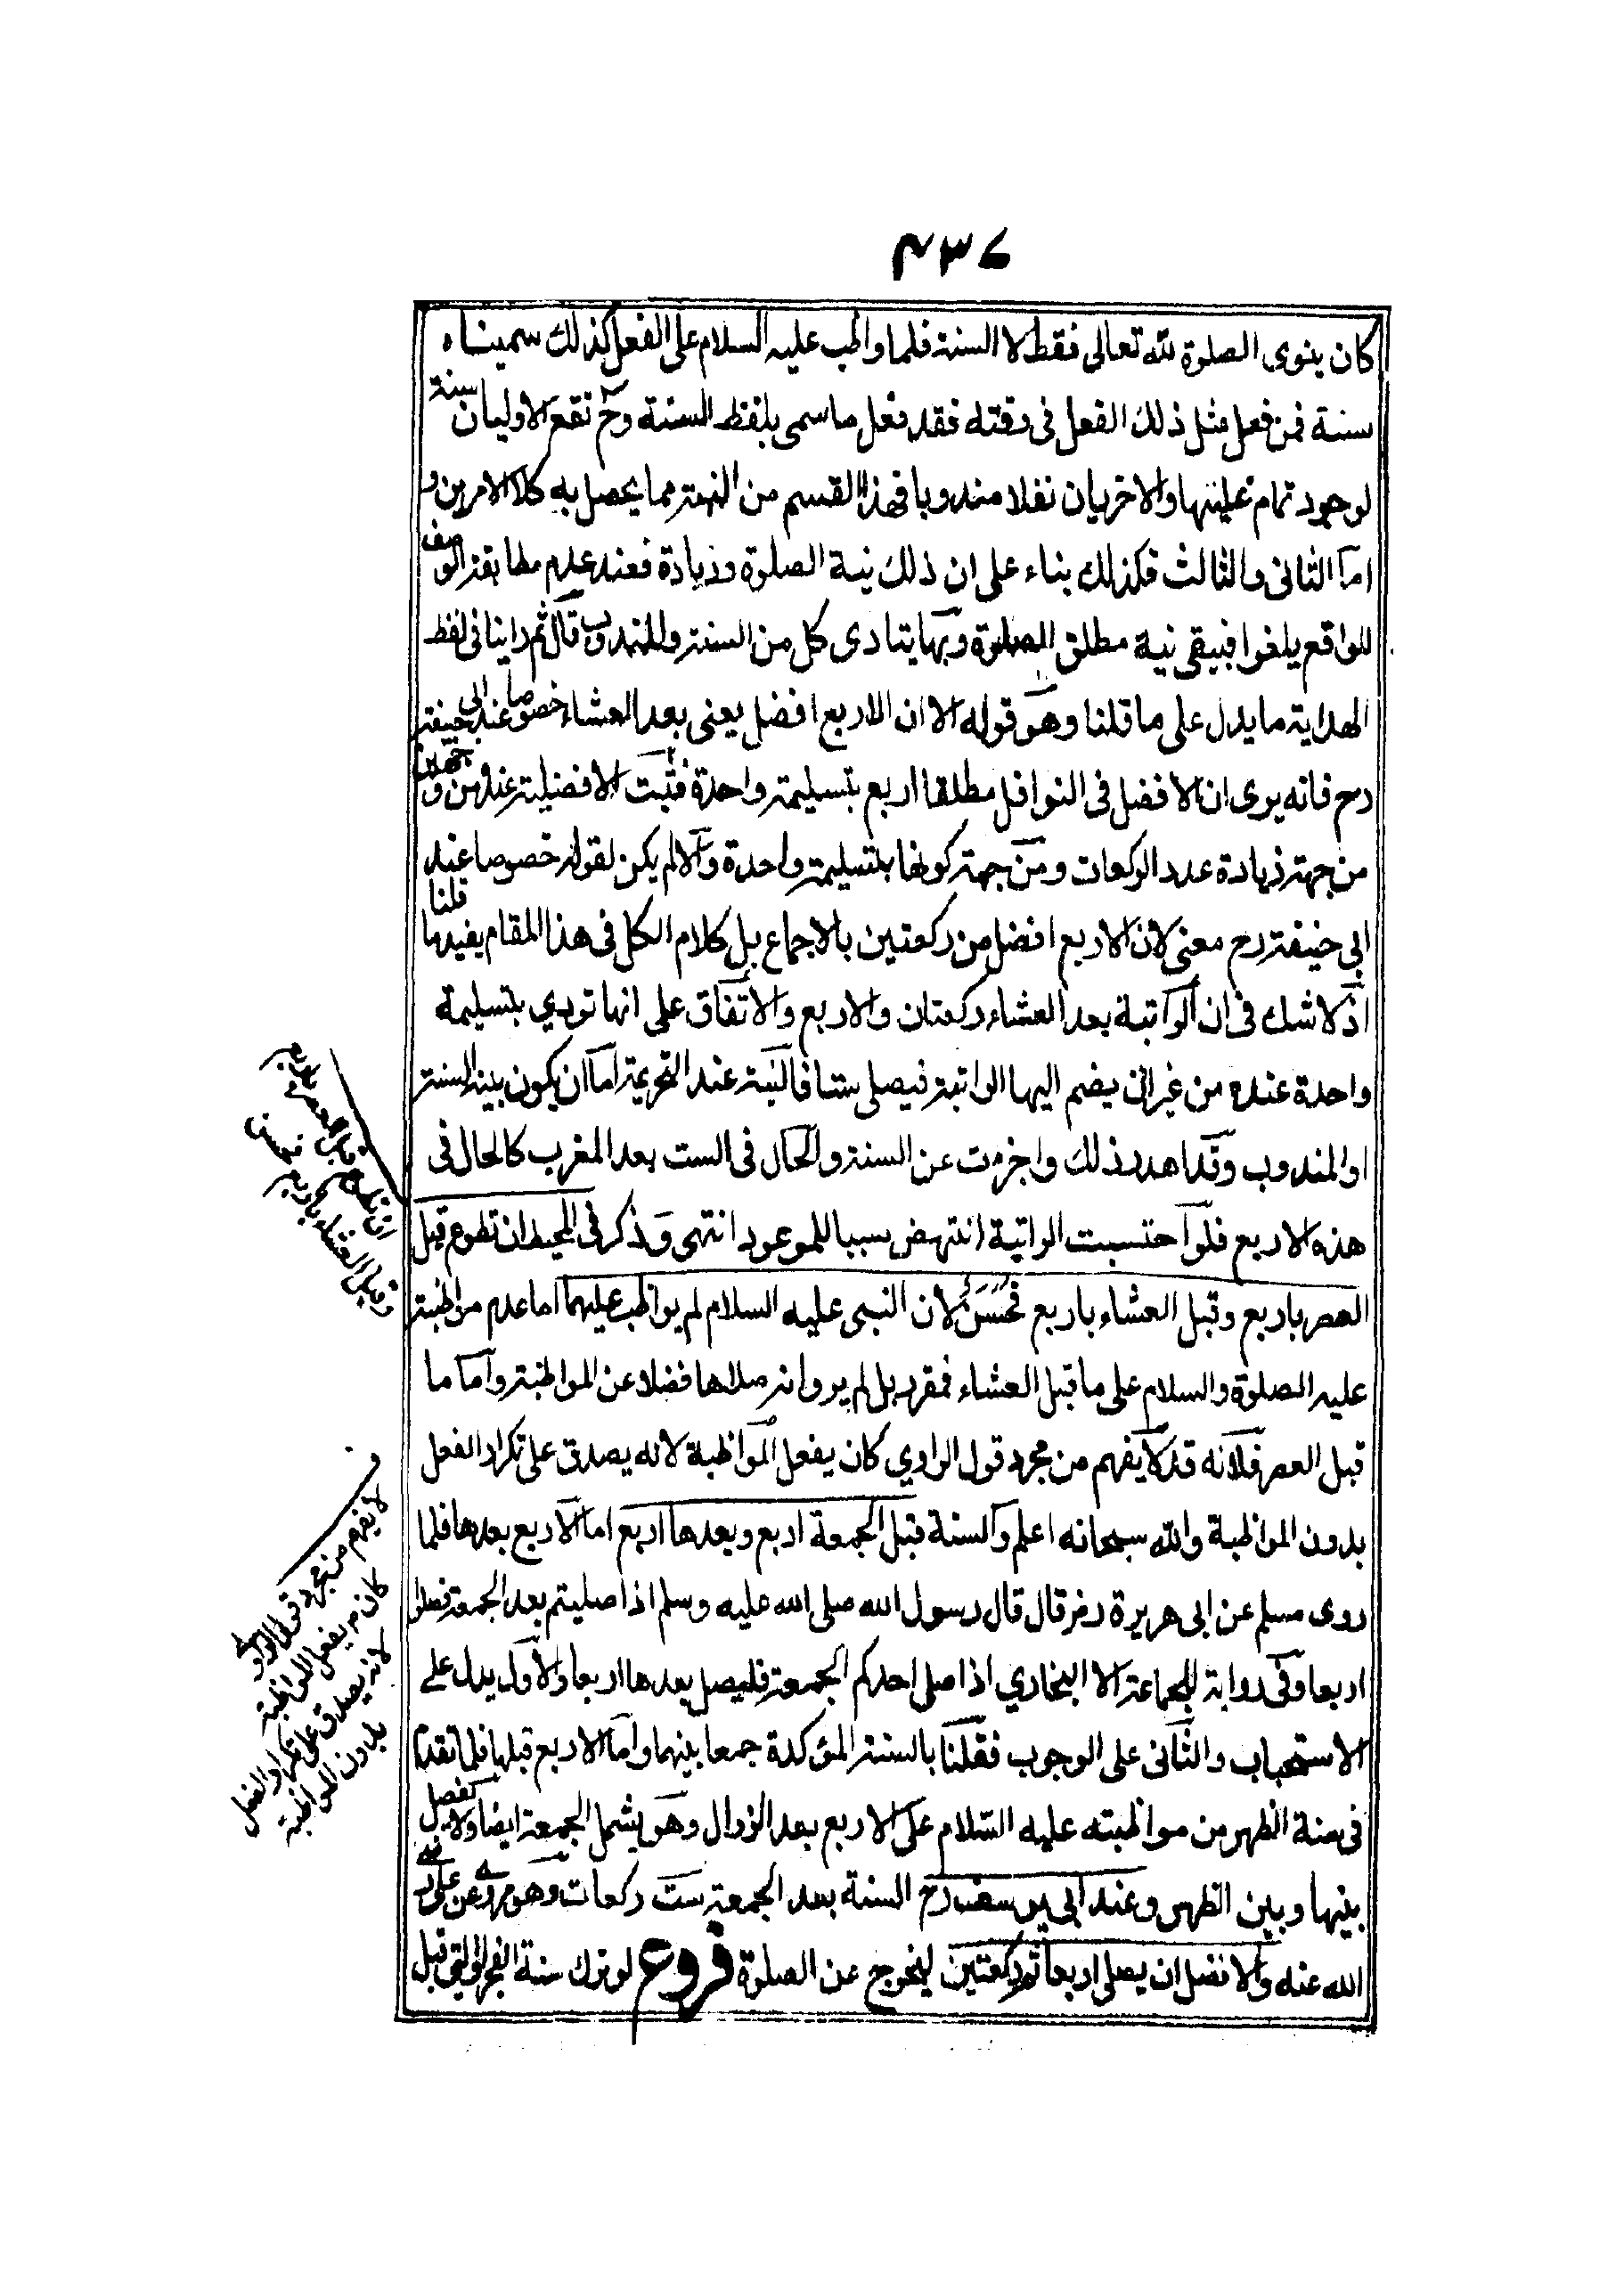 ٤٣٦
كان ينوى الصلوة لله تعالى فقط لا السنة فلما واظب عليه السلام على الفعل كذلك سميناه
سنة فمن فعل مثل ذلك الفعل فى وقته فقد فعل ما سمى بلفظ السنة وح تقع الاوليان سنة
لوجود تمام علتها والاخريان نفلا مندوبا فهذا القسم من النية مما يحصل به كلا الامرين و
اما الثانى والثالث فكذلك بناء على ان ذلك نية الصلوة وزيادة فعند عدم مطابقة الوصف
للواقع يلغوا فيبقى نية مطلق الصلوة وبها يتادى كل من السنة والمندوب قال ثم راينا فى لفظ
الهداية ما يدل على ما قلنا وهو قوله الا ان الاربع افضل يعنى بعد العشاء خصوصا عند ابى حنيفة
رح فانه يرى ان الافضل فى النوافل مطلقا اربع بتسليمة واحدة فثبت الافضلية عنده من وجهين
من جهة زيادة عدد الركعات ومن جهة كونها بتسليمة واحدة والا لم يكن لقوله خصوصا عند
ابى حنيفة رح معنى لان الاربع افضل من ركعتين بالاجماع بل كلام الكل فى هذا المقام يفيد ما قلنا
اذ لا شك فى ان الراتبة بعد العشاء ركعتان والاربع والاتفاق على انها تودي بتسليمة
واحدة عنده من غير ان يضم اليها الراتبة فيصلى ستا فالنية عند التحريمة اما ان يكون بنية السنة
او المندوب وقد اهدر ذلك واجزءت عن السنة والحال فى الست بعد المغرب كالحال فى
هذه الاربع فلو احتسبت الراتبة انتهض سببا للموعود انتهى وذكر فى المحيط ان تطوع قبل
العصر باربع وقبل العشاء باربع فحسن لان النبى عليه السلام لم يواظب عليهما اما عدم مواظبته
عليه الصلوة والسلام على ما قبل العشاء فمقرر بل لم يرو انه صلاها فضلا عن المواظبة واما ما
قبل العصر فلانه قد لا يفهم من مجرد قول الراوي كان يفعل المواظبة لانه يصدق على تكرار الفعل
بدون المواظبة والله سبحانه اعلم والسنة قبل الجمعة اربع وبعدها اربع اما الاربع بعدها فلما
روى مسلم عن ابى هريرة رض قال قال رسول الله صلى الله عليه وسلم اذا صليتم بعد الجمعة فصلوا
اربعا وفى رواية للجماعة الا البخاري اذا صلى احدكم الجمعة فليصل بعدها اربعا والاول يدل على
الاستحباب والثانى على الوجوب فقلنا بالسنة المؤكدة جمعا بينهما واما الاربع قبلها فلما تقدم
فى سنة الظهر من مواظبته عليه السلام على الاربع بعد الزوال وهو يشمل الجمعة ايضا ولا يفصل
بينها وبين الظهر وعند ابى يوسف رح السنة بعد الجمعة ست ركعات وهو مروى عن على رضى
الله عنه والافضل ان يصلى اربعا ثم ركعتين ليخرج عن الصلوة فروع لو ترك سنة الفجر او التى قبل
ان تطوع قبل العصر باربع
وقبل العشاء باربع فحسن
لا يفهم من مجرد قول الراوى
كان يفعل المواظبة
لانه يصدق على تكرار الفعل
بدون المواظبة